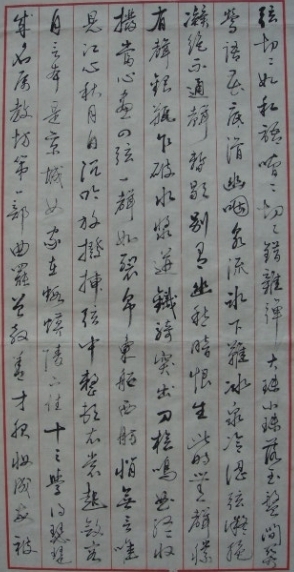 弦切〻如私語嘈〻切〻錯雜彈大珠小珠落玉盤間關
鶯語花底滑幽咽泉流冰下難冰泉冷澀弦凝絕
凝絕不通聲暫歇別有幽愁暗恨生此時無聲勝
有聲銀瓶乍破水漿迸鐵騎突出刀槍鳴曲終收
撥當心畫四弦一聲如裂帛東船西舫悄無言唯
見江心秋月白沉吟放撥插弦中整頓衣裳起斂容
自言本是京城女家在蝦蟆陵下住十三學得琵琶
成名屬教坊第一部曲罷曾教善才服妝成每被